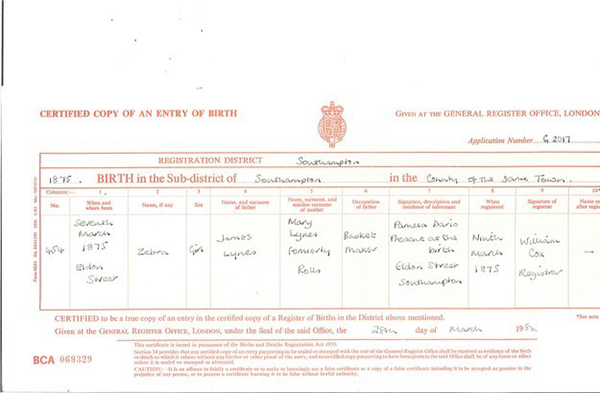 CERTIFIED COPY OF AN ENTRY OF BIRTH
GIVEN AT THE GENERAL REGISTER OFFICE, LONDON
Application Number G 2017
REGISTRATION DISTRICT Southampton
1875. BIRTH in the Sub-district of Southampton in the County of the same Town.
Columns:— 1 2 3 4 5 6 7 8 9 10*
No. When and where born Name, if any Sex Name, and surname of father Name, surname, and maiden surname of mother Occupation of father Signature, description, and residence of informant When registered Signature of registrar Name entered after registration
454 Seventh March 1875 Eldon Street Zebra Girl James Lynes Mary Lynes Formerly Rolls Basket Maker Pamela Davis Present at the birth Eldon Street Southampton Ninth March 1875 William Cox Registrar —
*See note
CERTIFIED to be a true copy of an entry in the certified copy of a Register of Births in the District above mentioned.
Given at the GENERAL REGISTER OFFICE, LONDON, under the Seal of the said Office, the 28th day of March 198
BCA 069329
This certificate is issued in pursuance of the Births and Deaths Registration Act 1953.
Section 34 provides that any certified copy of an entry purporting to be sealed or stamped with the seal of the General Register Office shall be received as evidence of the birth
or death to which it relates without any further or other proof of the entry, and no certified copy purporting to have been given in the said Office shall be of any force or effect
unless it is sealed or stamped as aforesaid.
CAUTION:—It is an offence to falsify a certificate or to make or knowingly use a false certificate or a copy of a false certificate intending it to be accepted as genuine to the
prejudice of any person, or to possess a certificate knowing it to be false without lawful authority.